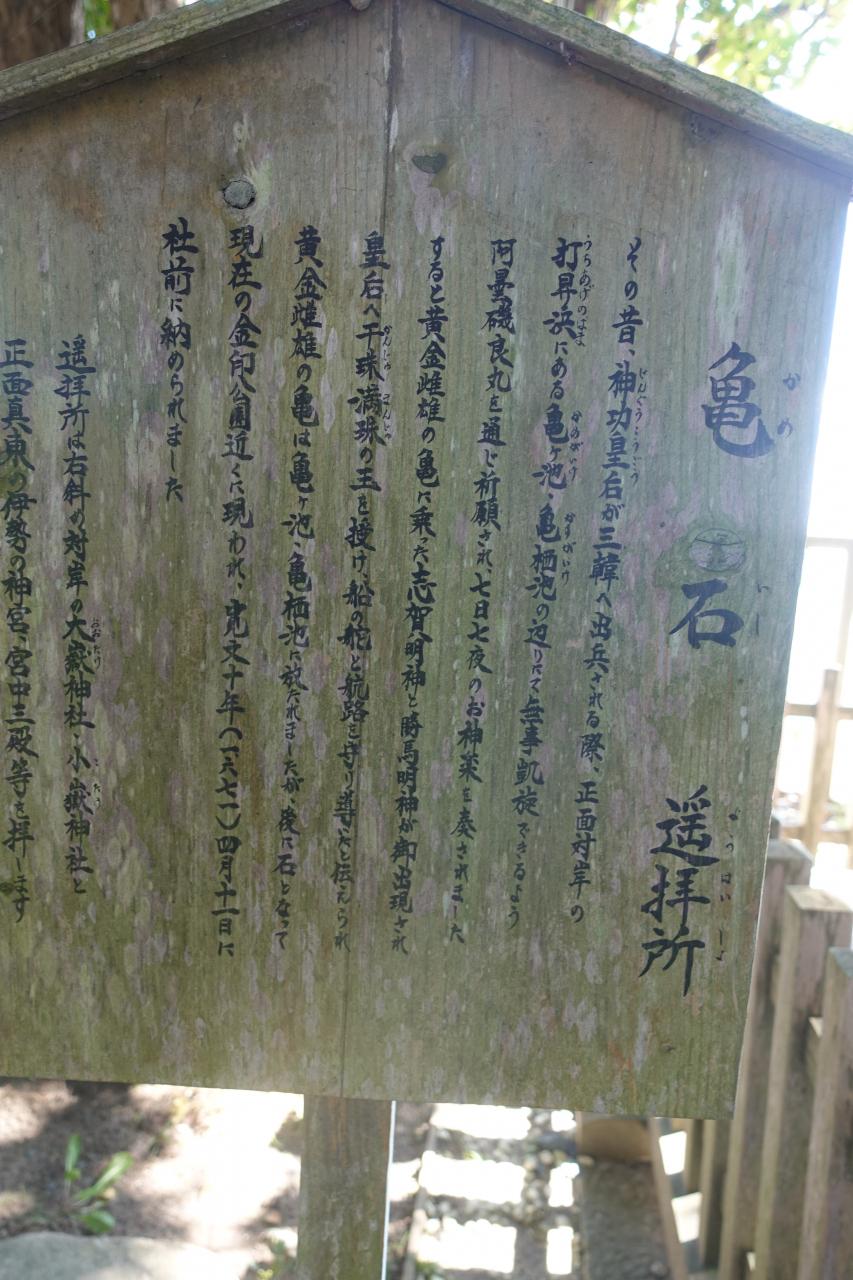 亀石
かめいし
遥拝所
ようはいしょ
その昔、神功皇后が三韓へ出兵される際、正面対岸の
じんぐうこうごう
打昇浜にある亀ヶ池・亀栖池の辺りにて無事凱旋できるよう
うちあげのはま
かめがいけ
かすがいけ
阿曇磯良丸を通じ祈願され、七日七夜のお神楽を奏されました
すると黄金雌雄の亀に乗った志賀明神と勝馬明神が御出現され
皇后へ干珠満珠の玉を授け、船の舵と航路を守り導いたと伝えられ
かんじゅ
まんじゅ
黄金雌雄の亀は亀ヶ池・亀栖池に放たれましたが、後に石となって
現在の金印公園近くに現われ、寛文十年(一六七一)四月十一日に
社前に納められました
遥拝所は右斜め対岸の大嶽神社・小嶽神社と
おおたけ
こたけ
正面真東の伊勢の神宮、宮中三殿等を拝します